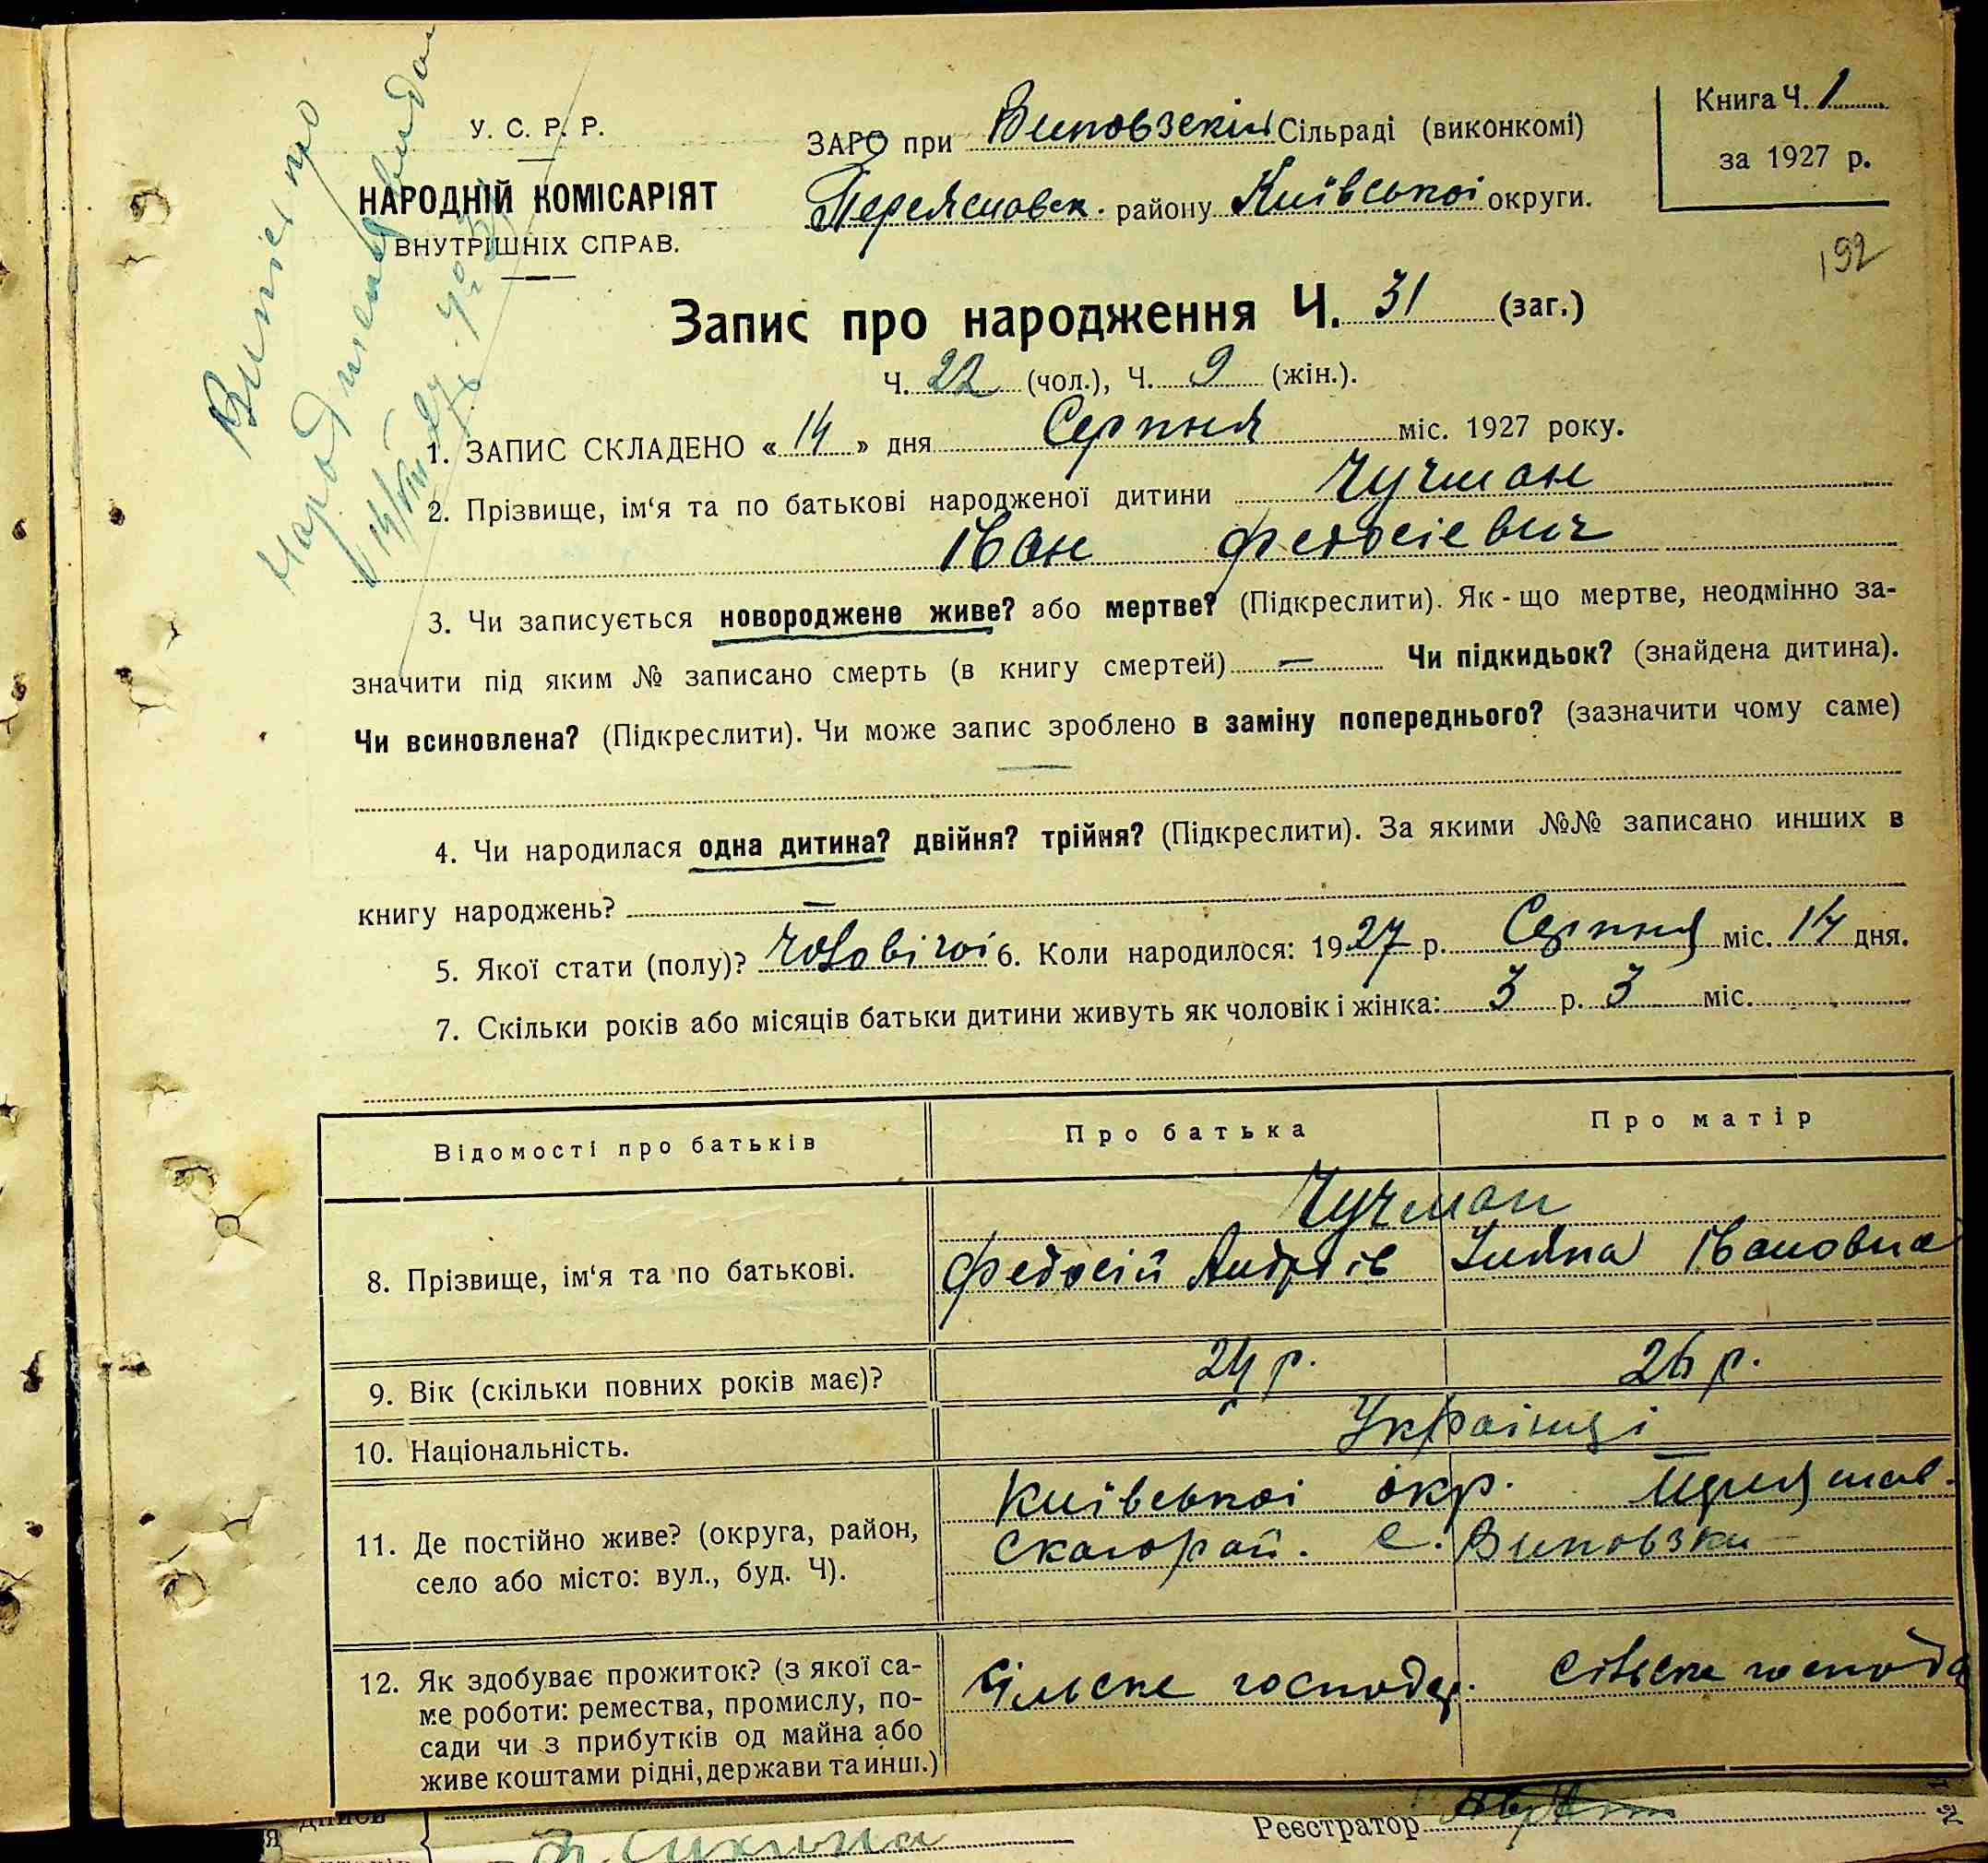 Випис про
народження видан
14/VIII 27 р.
У. С. Р. Р.
НАРОДНІЙ КОМІСАРІЯТ
ВНУТРІШНІХ СПРАВ.
ЗАРО при Виповзскій Сільраді (виконкомі)
Переяславск. району Київської округи.
Книга Ч. 1
за 1927 р.
192
Запис про народження Ч. 31 (заг.)
Ч. 22 (чол.), Ч. 9 (жін.).
1. ЗАПИС СКЛАДЕНО «14» дня Серпня міс. 1927 року.
2. Прізвище, ім‘я та по батькові народженої дитини Чучман
Іван Федосіевич
3. Чи записується новороджене живе? або мертве? (Підкреслити). Як-що мертве, неодмінно за-
значити під яким № записано смерть (в книгу смертей) — Чи підкидьок? (знайдена дитина).
Чи всиновлена? (Підкреслити). Чи може запис зроблено в заміну попереднього? (зазначити чому саме)
—
4. Чи народилася одна дитина? двійня? трійня? (Підкреслити). За якими №№ записано инших в
книгу народжень? —
5. Якої стати (полу)? чоловічоі 6. Коли народилося: 1927 р. Серпня міс. 14 дня.
7. Скільки років або місяців батьки дитини живуть як чоловік і жінка: 3 р. 3 міс.
Відомості про батьків Про батька Про матір
Чучман
8. Прізвище, ім‘я та по батькові. Федосій Андріів Івановна
9. Вік (скільки повних років має)? 24 р. 26 р.
10. Національність. Украінці
Київськоі окр. Переяслав.
11. Де постійно живе? (округа, район, ского рай. с. Виповзки
село або місто: вул., буд. Ч).
12. Як здобуває прожиток? (з якої са- Сільске господар. сільске господа
ме роботи: ремества, промислу, по-
сади чи з прибутків од майна або
живе коштами рідні, держави та инш.)
Реєстратор